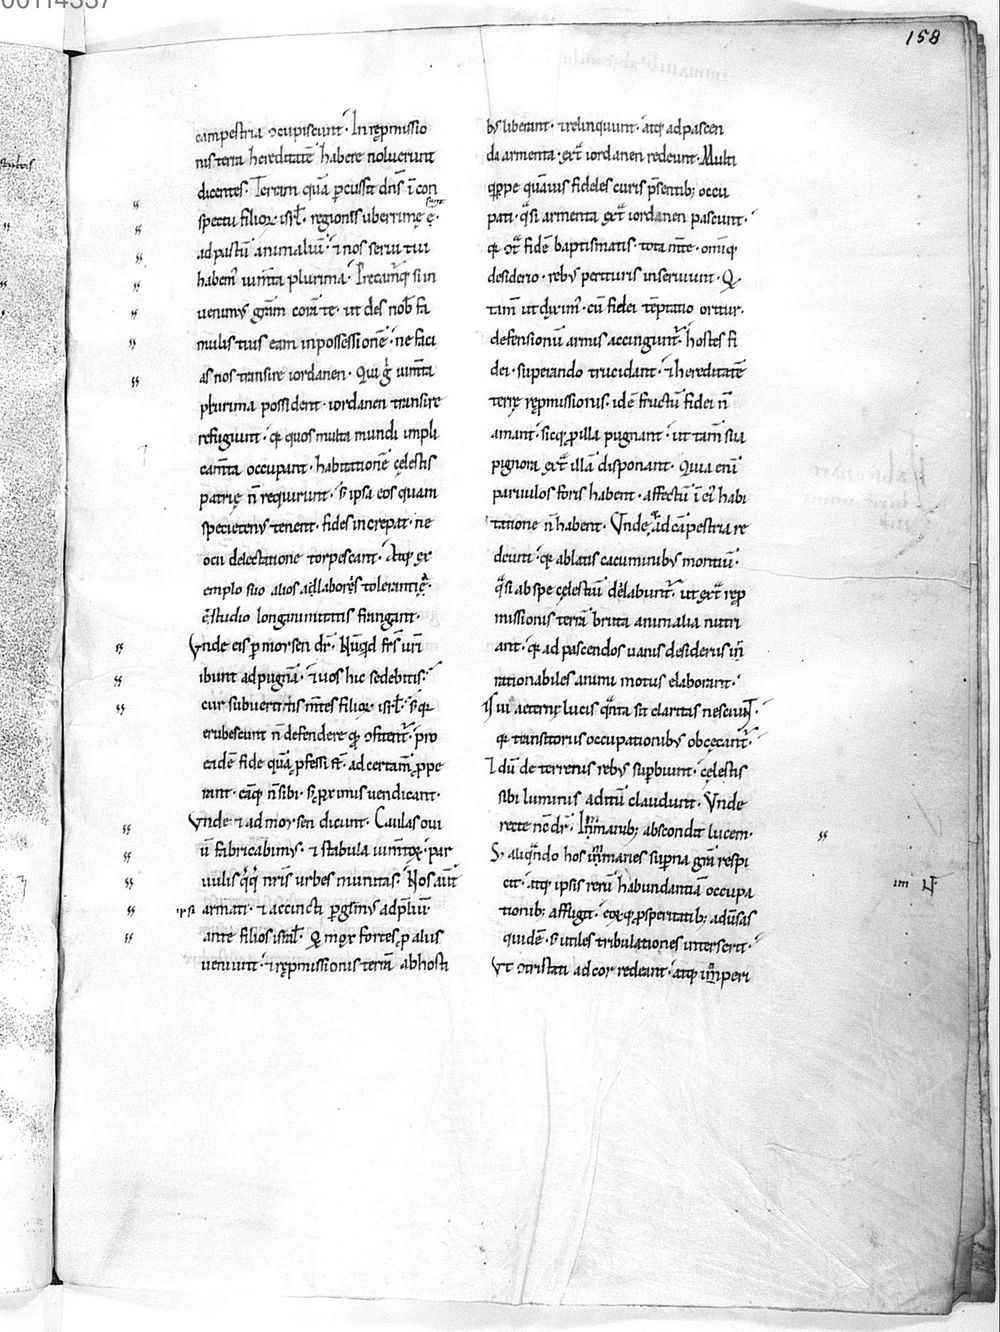 158
campestria ɔcupiscunt· In rep̱missio
nis terra hereditatē habere noluerunt
dicentes· Terram quā ꝑcussit dn̄s ī con
spectu filioꝝ isrl̄· regionis uberrimę ē· sunt
ad pastū animaliū· ⁊ nos serui tui
habem᷒ iumta plurima· Precam᷒q; si in
uenimꝰ grām corā te· ut des nob̄ fa
mulis tuis eam in possessionē· ne faci
as nos transire iordanen· Qui g̊ iumta
plurima possident· iordanen transire
refugiunt· qꝫ quos multa mundi impli
camta occupant· habitationē cęlestis
patrię n̄ requirunt· s; ipsa eos quam
specietenꝰ tenent· fides increpat· ne
ocii delectatione torpescant· Atq; ex
emplo suo alios ad labores tolerantię·
ē studio longinimitatis frangant·
Vnde eis ꝑ moysen dr̄· Nūqd fr̄s ur̄i
ibunt ad pugnā· ⁊ uos hic sedebitis·
cur subuertitis mtes filioꝝ isrl̄· S; qꝫ
erubescunt n̄ defendere qđ ɔfitent᷒· pro
eidē fide quā ꝓfessi s̄t· ad certam̄ ꝓpe
rant· eāq; n̄ sibi· s; ꝓximis uendicant·
Vnde ⁊ ad moysen dicunt· Caulas oui
ū fabricabimꝰ· ⁊ stabula iumtoꝝ· par
uulis q̊q; nr̄is urbes munitas· Nos aūt
ipsi armati· ⁊ accincti ꝑgemꝰ ad pliū
ante filios isral̄· Q mox fortes ꝓ aliis
ueniunt· ⁊ rep̱missionis terā ab hosti
bꝰ liberant· ⁊ relinquunt· atq; ad pascen
da armenta· extᷓ iordanen redeunt· Multi
qippe quāuis fideles curis p̄sentib; occu
pati· qᷓsi armenta extᷓ iordanen pascunt·
qꝫ ɔtᷓ fidē baptismatis tota mte· omiq;
desiderio· rebꝰ perituris inseruiunt· Q
tam̄ ut diximꝰ· cū fidei tēptatio oritur·
defensionū armis accingunt᷒· hostes fi
dei· superando trucidant· ⁊ hereditatē
terrę rep̱missionis· idē fructū fidei n̄
amant· sicq; ꝓ illa pugnant· ut tam̄ sua
pignora extᷓ illā disponant· Quia eni
paruulos foris habent· affectū ī ea habi
tatione n̄ habent· Vnde ad cāpestria re
deunt· qꝫ ablatis cacuminibꝰ montiū·
qᷓsi ab spe cęlestiū delabunt᷒· ut extᷓ rep̱
missionis terā bruta animalia nutri
ant· qꝫ ad pascendos uariis desideriis in̄
rationabiles animi motus elaborant·
Isti aeternę lucis qᷓnta sit claritas nesciunt·
qꝫ transitoriis occupationibꝰ obcęcant᷒·
⁊ dū de terrenis rebꝰ supbiunt· cęlestis
sibi luminis aditū claudunt· Vnde
recte nc̄ dr̄· Immanib; abscondit lucem·
S; aliqᷓndo hos immanes suꝑna grā respi
cit· atq; ipsis rerū habundantiā occupa
tionib; affligit· eoꝝq; ꝓsperitatib; aduersas
quidē· s; utiles tribulationes interserit·
Vt ɔtristati ad cor redeant· atq; in̄ imperi
im